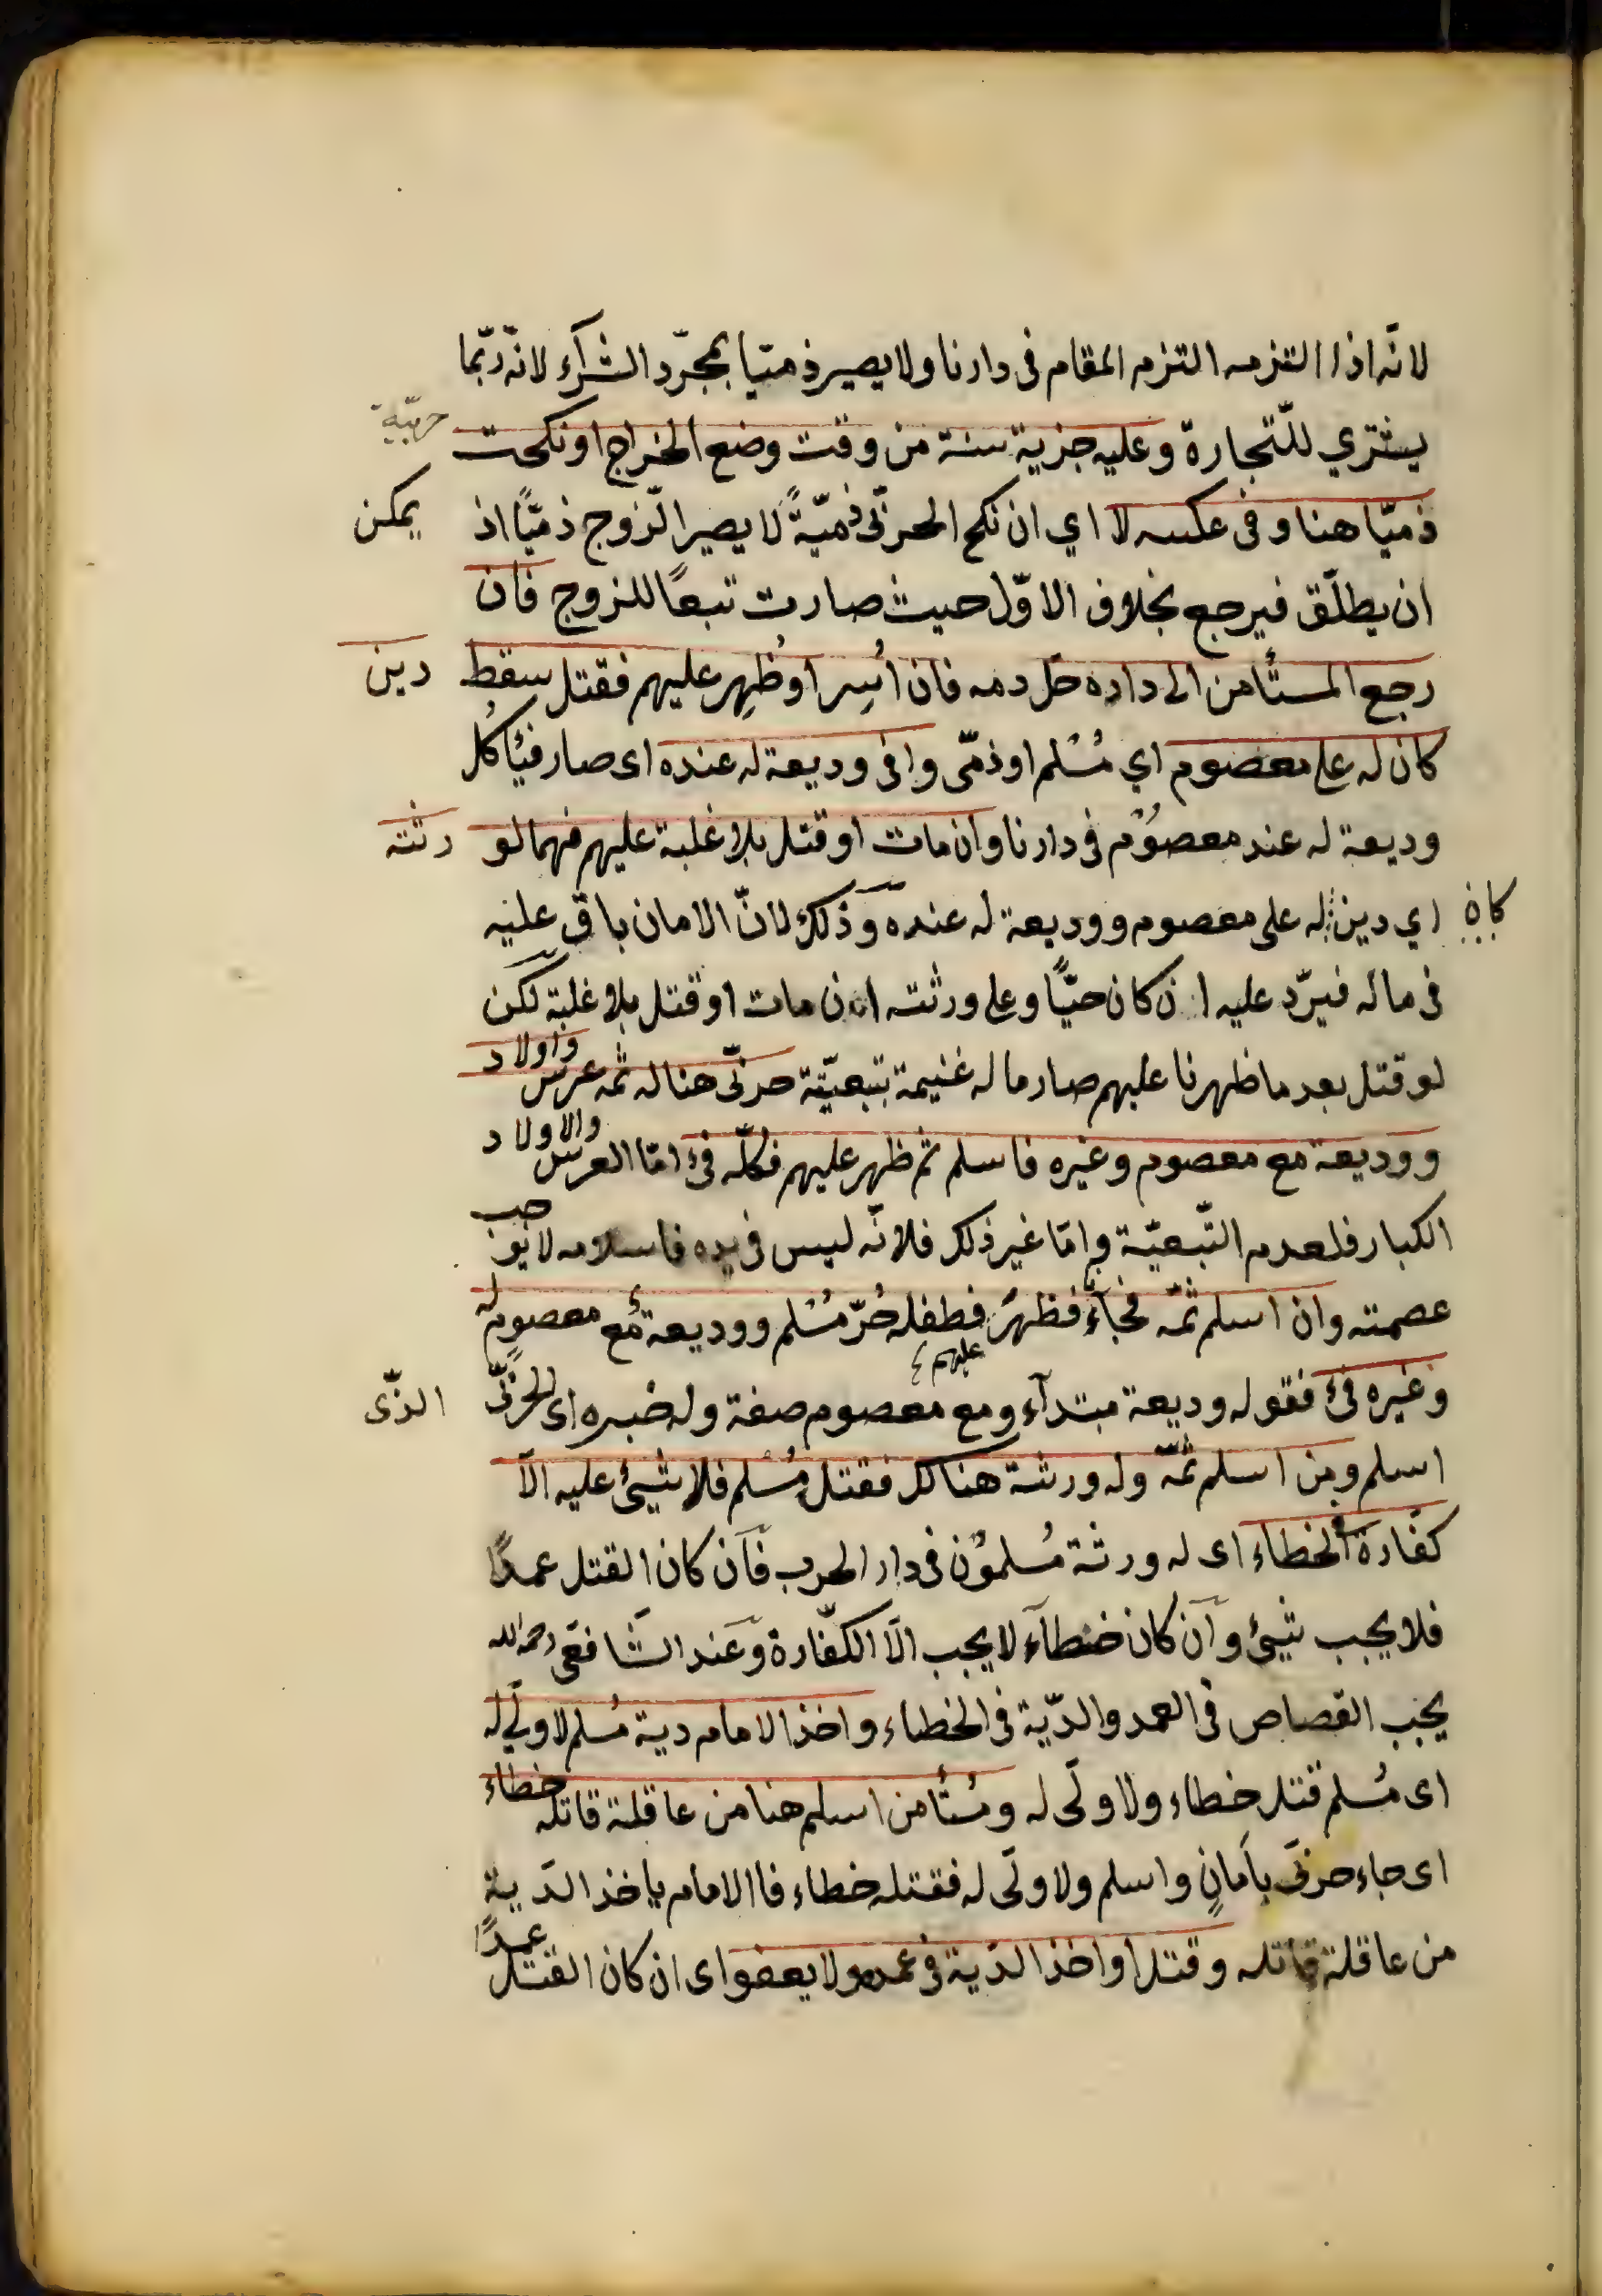 لانّه اذا التزمه التزم المقام فى دارنا ولا يصير ذميّا بمجرّد الشرآء لانّه ربّما
يشتري للتّجارة وعليه جزية سنة من وقت وضع الخراج او نكحت حربيّة
ذميّا هنا و فى عكسه لا اي ان نكح الحربّى ذميّةً لا يصير الزّوج ذميًّا اذ يمكن
ان يطلّق فيرجع بخلاف الاوّل حيث صارت تبعًا للزوج فان
رجع المستأمن الى داره حلّ دمه فان اُسِر او ظُهِر عليهم فقتل سقط دين
كان له على معصوم اي مُسْلم او ذمّى وافى وديعة له عنده اى صار فيئًا كل
وديعة له عند معصوُم فى دارنا وان مات او قتل بلا غلبة عليهم فهما لو رثته
اي دين له على معصوم ووديعة له عنده وذلك لانّ الامان باق عليه
كان
فى ماله فيرّد عليه ان كان حيًّا وعلى ورثته ان مات او قتل بلا غلبة لكن
لو قتل بعد ما ظهرنا عليهم صار ما له غنيمة بتبعيّته حربّى هنا له ثمه عرس واولاد
ووديعة مع معصوم وغيره فاسلم ثم ظهر عليهم فكلّه فئ امّا العرس والاولاد
الكبار فلعدم التّبعيّة وامّا غير ذلك فلانّه ليس فى يده فاسلامه لا يوجب
عصمته وان اسلم ثمّه فجآء فظهر عليهم فطفله حُرّ مُسْلم ووديعة مع معصوم له
وغيره فئ فقوله وديعة مبتدآء ومع معصوم صفة وله خبره اى للحربّى الذّى
اسلم ومن اسلم ثمّه وله ورثة هناك فقتل مُسْلم فلا شيئ عليه الّا
كفّارة الخطاء اى له ورثة مُسلموُن فى دار الحرب فآن كان القتل عمدًا
فلا يجب شيئ وآن كان خطآء لا يجب الّا الكفّارة وعند الشّافعى رحمه الله
يجب القصاص فى العمد والدّية فى الخطاء واخذ الامام دية مُسلم لا ولّى له
اى مُسلم قتل خطاء ولا ولّى له ومُستأمن اسلم هنا من عاقلة قاتله خطاء
اى جاء حربّى باَمانٍ واسلم ولا ولّى له فقتله خطاء فاالامام ياخذ الدّية
من عاقلة قاتله وقتل او اخذ الدّية فى عمده ولا يعفو اى ان كان القتل عمدًا